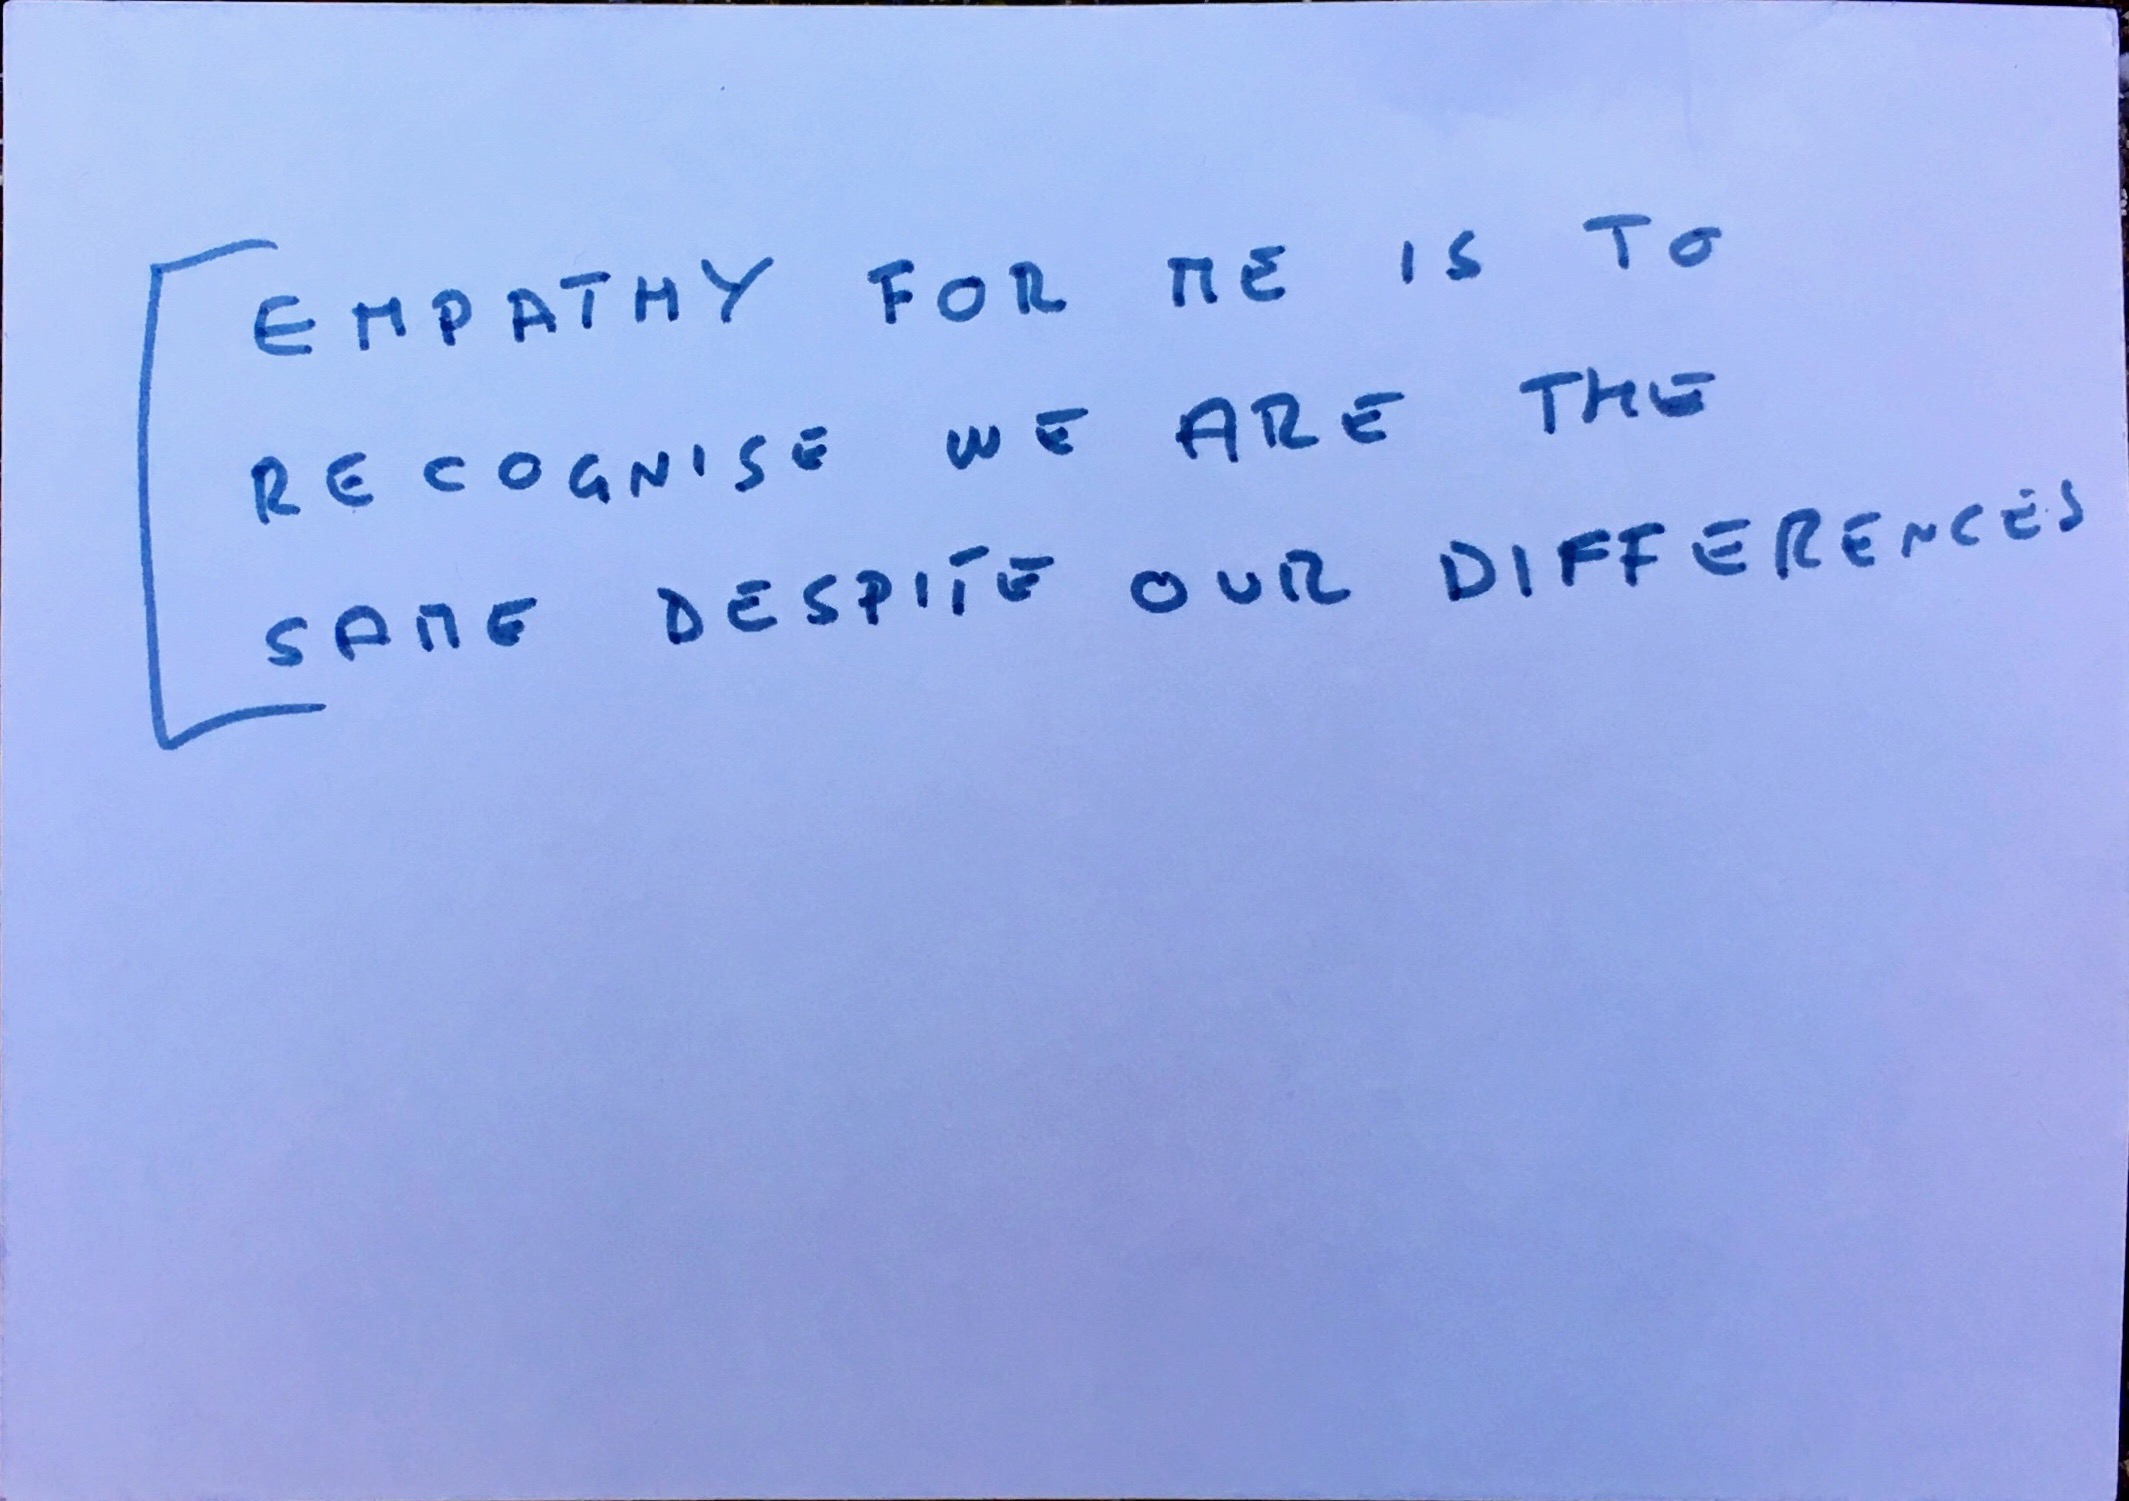 EMPATHY FOR ME IS TO
RECOGNISE WE ARE THE
SAME DESPITE OUR DIFFERENCES